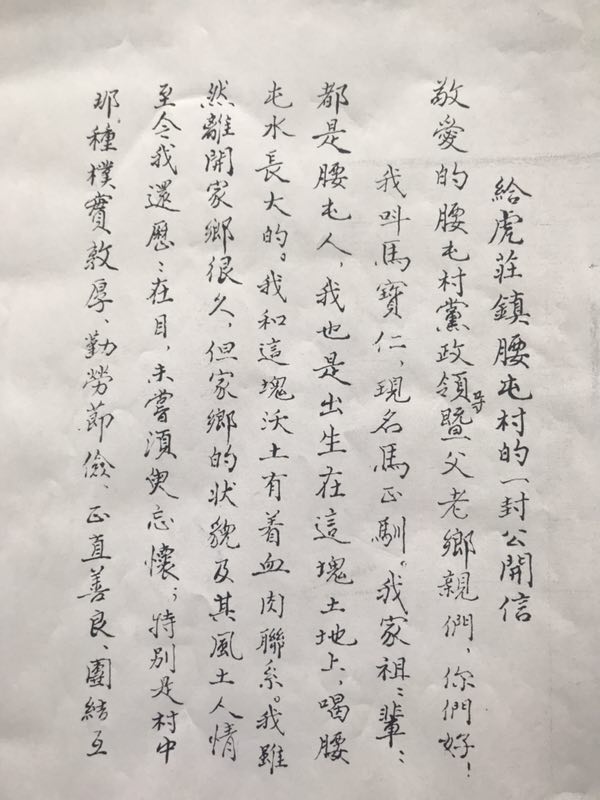 給虎莊鎮腰屯村的一封公開信
敬愛的腰屯村黨政領導暨父老鄉親們、你們好！
我叫馬寶仁，現名馬正馴。我家祖〻輩〻
都是腰屯人，我也是出生在這塊土地上，喝腰
屯水長大的。我和這塊沃土有着血肉聯系。我雖
然離開家鄉很久，但家鄉的状貌及其風土人情
至今我還歷〻在目，未嘗須臾忘懷；特別是村中
那種樸實敦厚、勤勞節儉、正直善良、團結互